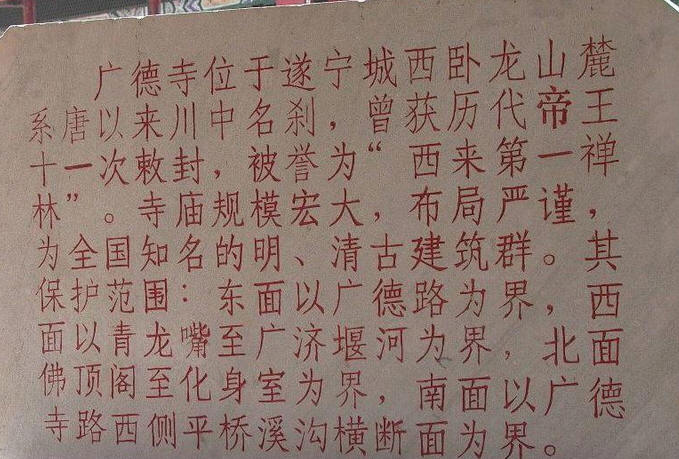 广德寺位于遂宁城西卧龙山麓
系唐以来川中名刹，曾获历代帝王
十一次敕封，被誉为“西来第一禅
林”。寺庙规模宏大，布局严谨，
为全国知名的明、清古建筑群。其
保护范围：东面以广德路为界，西
面以青龙嘴至广济堰河为界，北面
佛顶阁至化身室为界，南面以广德
寺路西侧平桥溪沟横断面为界。